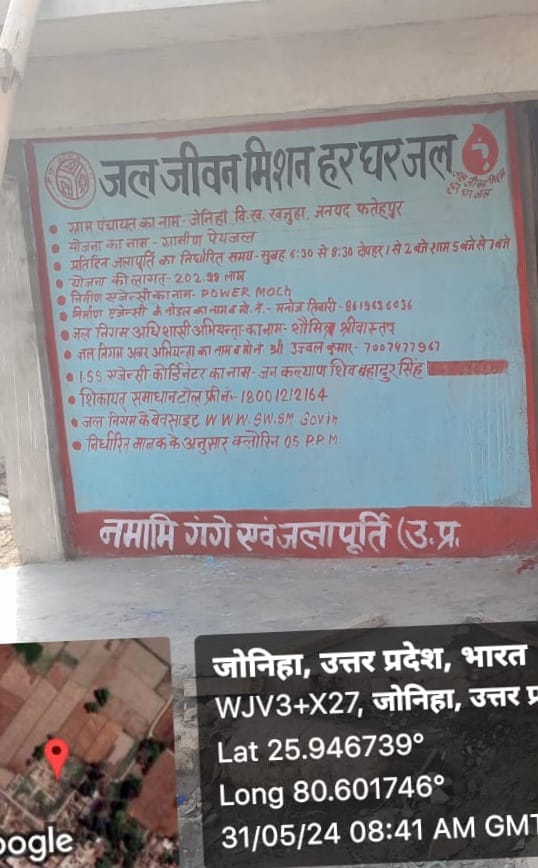 जल जीवन मिशन हर घर जल
• ग्राम पंचायत का नाम- जेनिही वि.ख. खजुहा, जनपद फतेहपुर
• योजना का नाम - ग्रामीण पेयजल
• प्रतिदिन जलापूर्ति का निर्धारित समय- सुबह 6:30 से 8:30 दोपहर 1 से 2 बजे शाम 5 बजे से 7 बजे
• योजना की लागत- 202.99 लाख
• निर्माण एजेन्सी का नाम- POWER MOCh
• निर्माण एजेन्सी के नोडल का नाम व मो. नं. - मनोज तिवारी - 8619636036
• जल निगम अधिशासी अभियन्ता का नाम- शौमित्र श्रीवास्तव
• जल निगम अवर अभियन्ता का नाम व मो नं श्री उज्वल कुमार- 7007477967
• I.S.S. एजेन्सी कोर्डिनेटर का नाम- जन कल्याण शिव बहादुर सिंह
• शिकायत समाधान टोल फ्री नं- 18001212164
• जल निगम के वेबसाइट WWW.SW.SM Govin
• निर्धारित मानक के अनुसार क्लोरिन 05 P.P.M
नमामि गंगे एवं जलापूर्ति (उ.प्र.
जोनिहा, उत्तर प्रदेश, भारत
WJV3+X27, जोनिहा, उत्तर प्र
Lat 25.946739°
Long 80.601746°
31/05/24 08:41 AM GMT
oogle